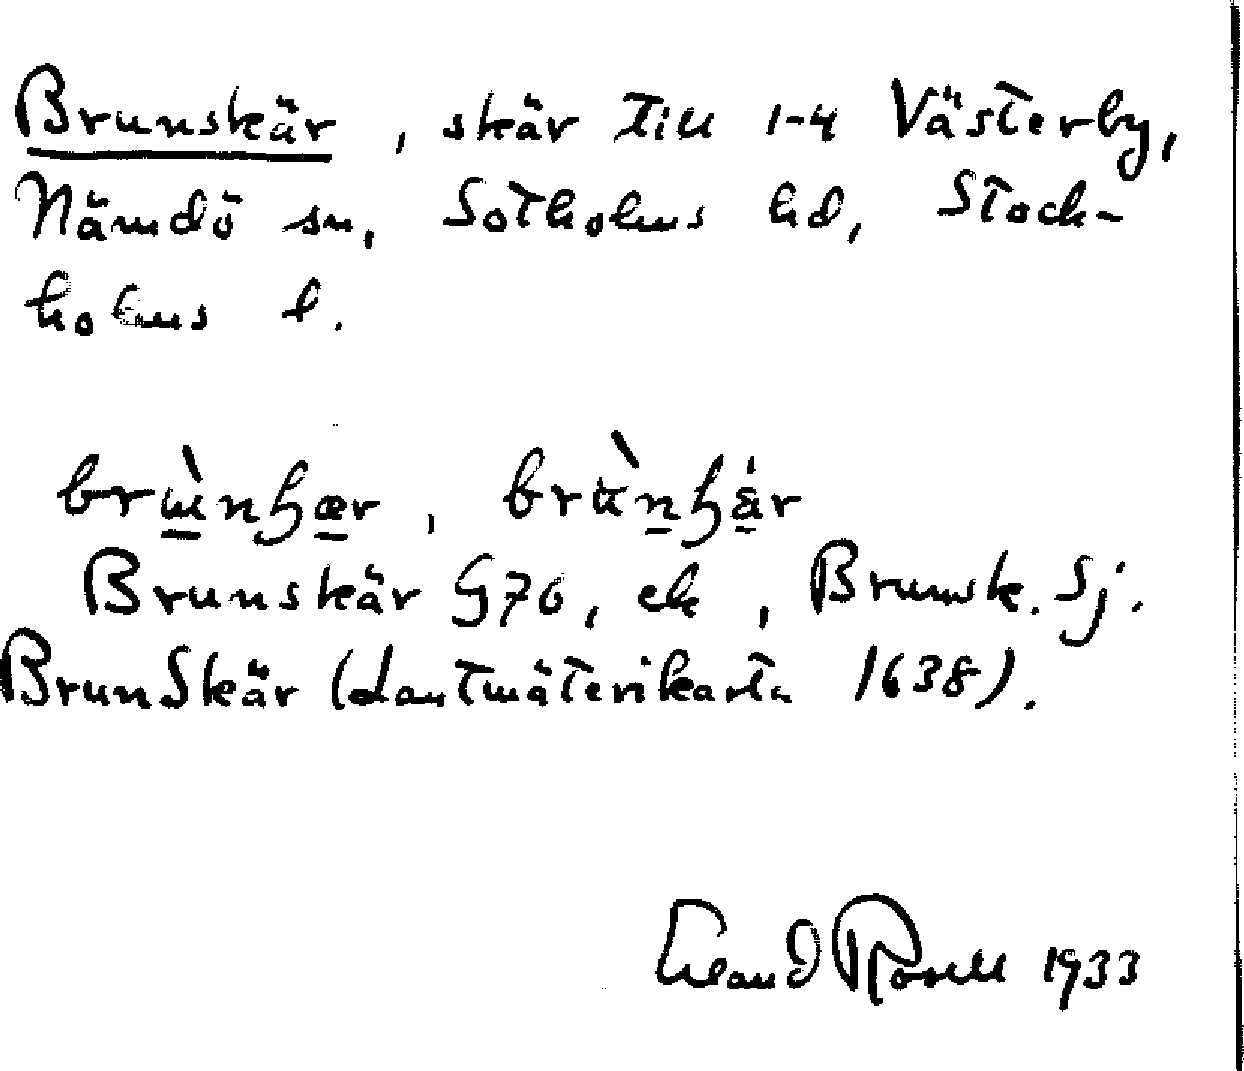 Brunskär, skär till 1-4 Västerby,
Nämdö sn, Sotholms hd, Stock-
holms l.
Brunskär G76, ek, Brunsk. Sj.
BrunSkär (Lantmäterikarta 1638).
Rosell 1933